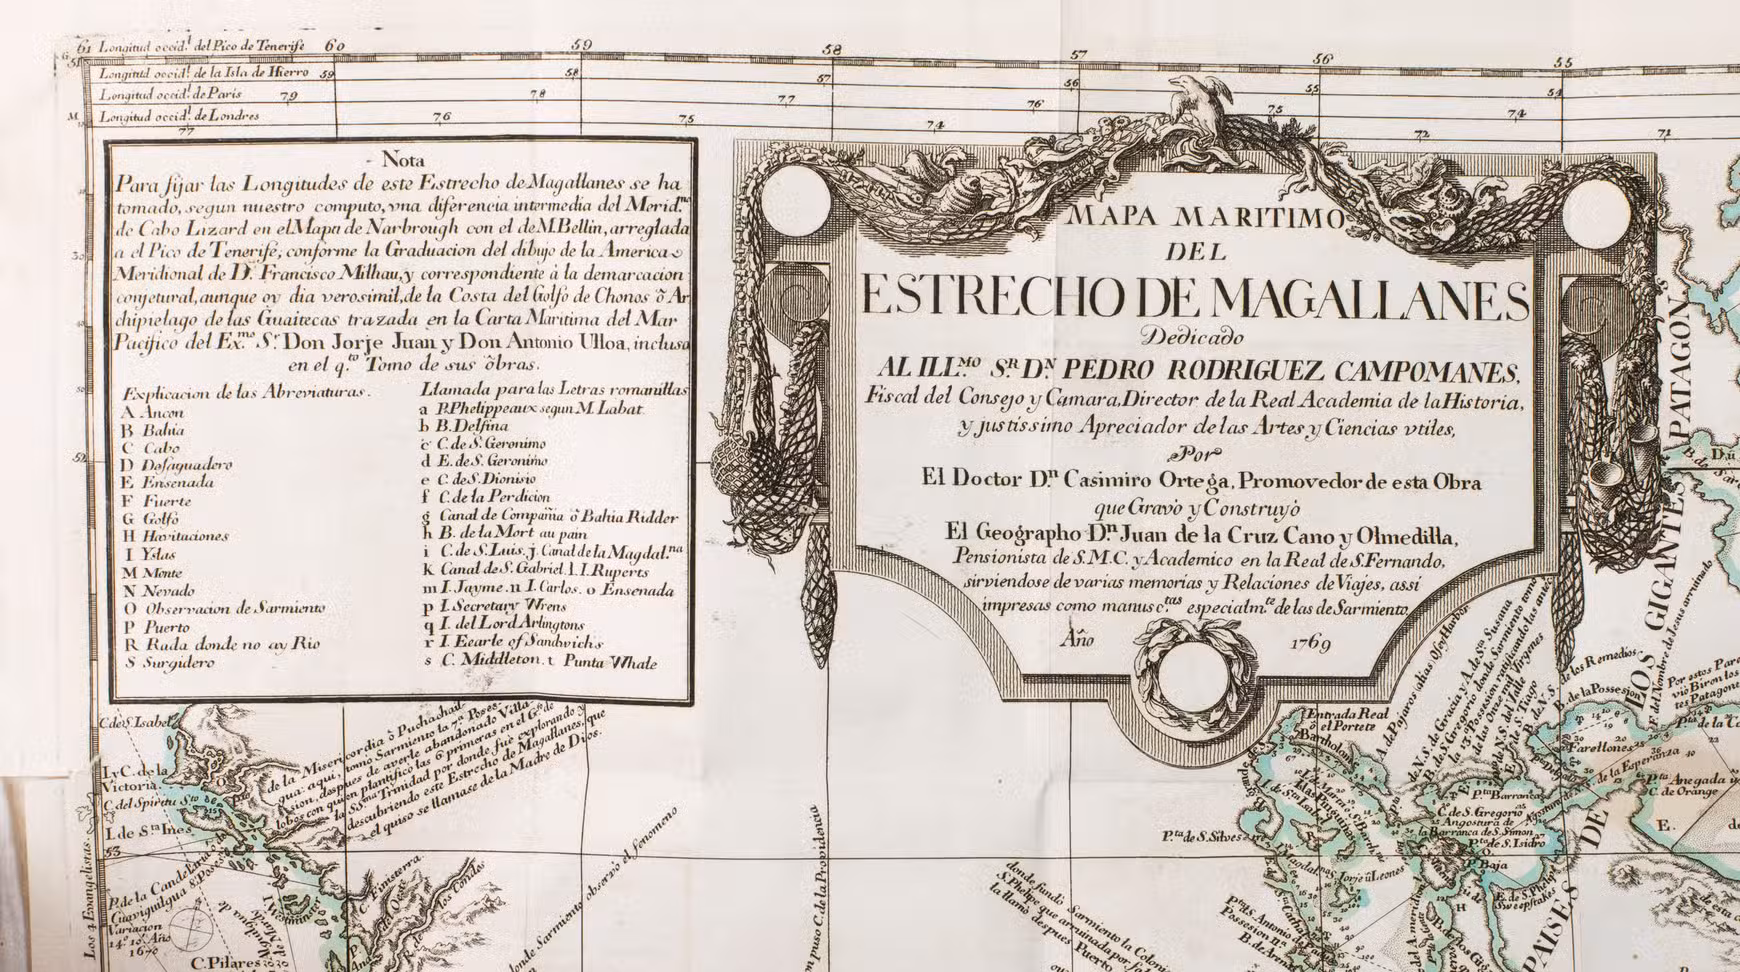 61 Longitud occid.l del Pico de Tenerife 60 59 58 57 56 55
Longitud occid.l de la Isla de Hierro 59 58 57 56 55 54
Longitud occid.l de Paris 79 78 77 76 75 74
Longitud occid.l de Londres 77 76 75 74 72 71
Nota
Para fijar las Longitudes de este Estrecho de Magallanes se ha
tomado, segun nuestro computo, vna diferencia intermedia del Merid.no
de Cabo Lizard en el Mapa de Narbrough con el de M. Bellin, arreglada
a el Pico de Tenerife, conforme la Graduacion del dibujo de la America
Meridional de D.n Francisco Milhau, y correspondiente à la demarcacion
conjetural, aunque oy dia verosimil, de la Costa del Golfo de Chonos ô Ar
chipielago de las Guaitecas trazada en la Carta Maritima del Mar
Pacifico del Ex.mo S.r Don Jorje Juan y Don Antonio Ulloa, inclusa
en el q.to Tomo de sus ôbras.
Explicacion de las Abreviaturas.
A Ancon
B Bahia
C Cabo
D Desaguadero
E Ensenada
F Fuerte
G Golfo
H Havitaciones
I Yslas
M Monte
N Nevado
O Observacion de Sarmiento
P Puerto
R Rada donde no ay Rio
S Surgidero
Llamada para las Letras romanillas
a P. Phelippeaux segun M. Labat.
b B. Delfina
c C. de S. Geronimo
d E. de S. Geronimo
e C. de S. Dionisio
f C. de la Perdicion
g Canal de Compañia ô Bahia Ridder
h B. de la Mort au pain
i C. de S. Luis. j. Canal de la Magdal.na
k Canal de S. Gabriel. l I. Ruperts
m I. Jayme. n I. Carlos. o Ensenada
p I. Secretary Wrens
q I. del Lord Arlingtons
r I. Eearle of Sandwichs
s C. Middleton. t Punta Whale
MAPA MARITIMO
DEL
ESTRECHO DE MAGALLANES
Dedicado
AL ILL.MO S.R D.N PEDRO RODRIGUEZ CAMPOMANES,
Fiscal del Consejo y Camara, Director de la Real Academia de la Historia,
y justissimo Apreciador de las Artes y Ciencias vtiles,
Por
El Doctor D.n Casimiro Ortega, Promovedor de esta Obra
que Gravò y Construyò
El Geographo D.n Juan de la Cruz Cano y Olmedilla,
Pensionista de S.M.C. y Academico en la Real de S. Fernando,
sirviendose de varias memorias y Relaciones de Viajes, assi
impresas como manusc.tas especialm.te de las de Sarmiento.
Año 1769
C. de S. Isabel
I. y C. de la
Victoria
C. del Spiritu S.to
I. de S.ta Ines
53
de la Misericordia ô Puchachail
qua: aqui, tomò Sarmiento la 7.a Poses-
sion, despues de averle abandonado Villa
lobos con quien plantificò las 6 primeras en el G. de
la SS.ma Trinidad por donde fuè explorando y
descubriendo este Estrecho de Magallanes, que
el quiso se llamase de la Madre de Dios.
P. de la Candelaria ô
Variacion
14° 10'. Año
1670
Los 4 Evangelistas.
C. Pilares
I. Westminster
C. de la Providencia
donde Sarmiento observò el fenomeno
donde fundò Sarmiento la Colonia
S. Phelipe que arruinada por
la llamò despues Puerto
P.ta de S. Silves
Entrada Real
el Portete
P.ta S. Antonio
Posession 11.a
A. de Pajaros alias Osey Harbor
B. de los Remedios.
B. de la Possesion
Farellones
de la Esperanza
P.ta Anegada
C. de Orange
P.ta Barranca
C. de S. Gregorio
Angostura de
la Barranca de S. Simon
P.ta de S. Isidro
P. Baja
S. Jorje ù Leones
Sweepstakes
LOS GIGANTES PATAGON.
PAISES DE
Por estos Par
viò Biron los
tes Patagon
E.
H
52